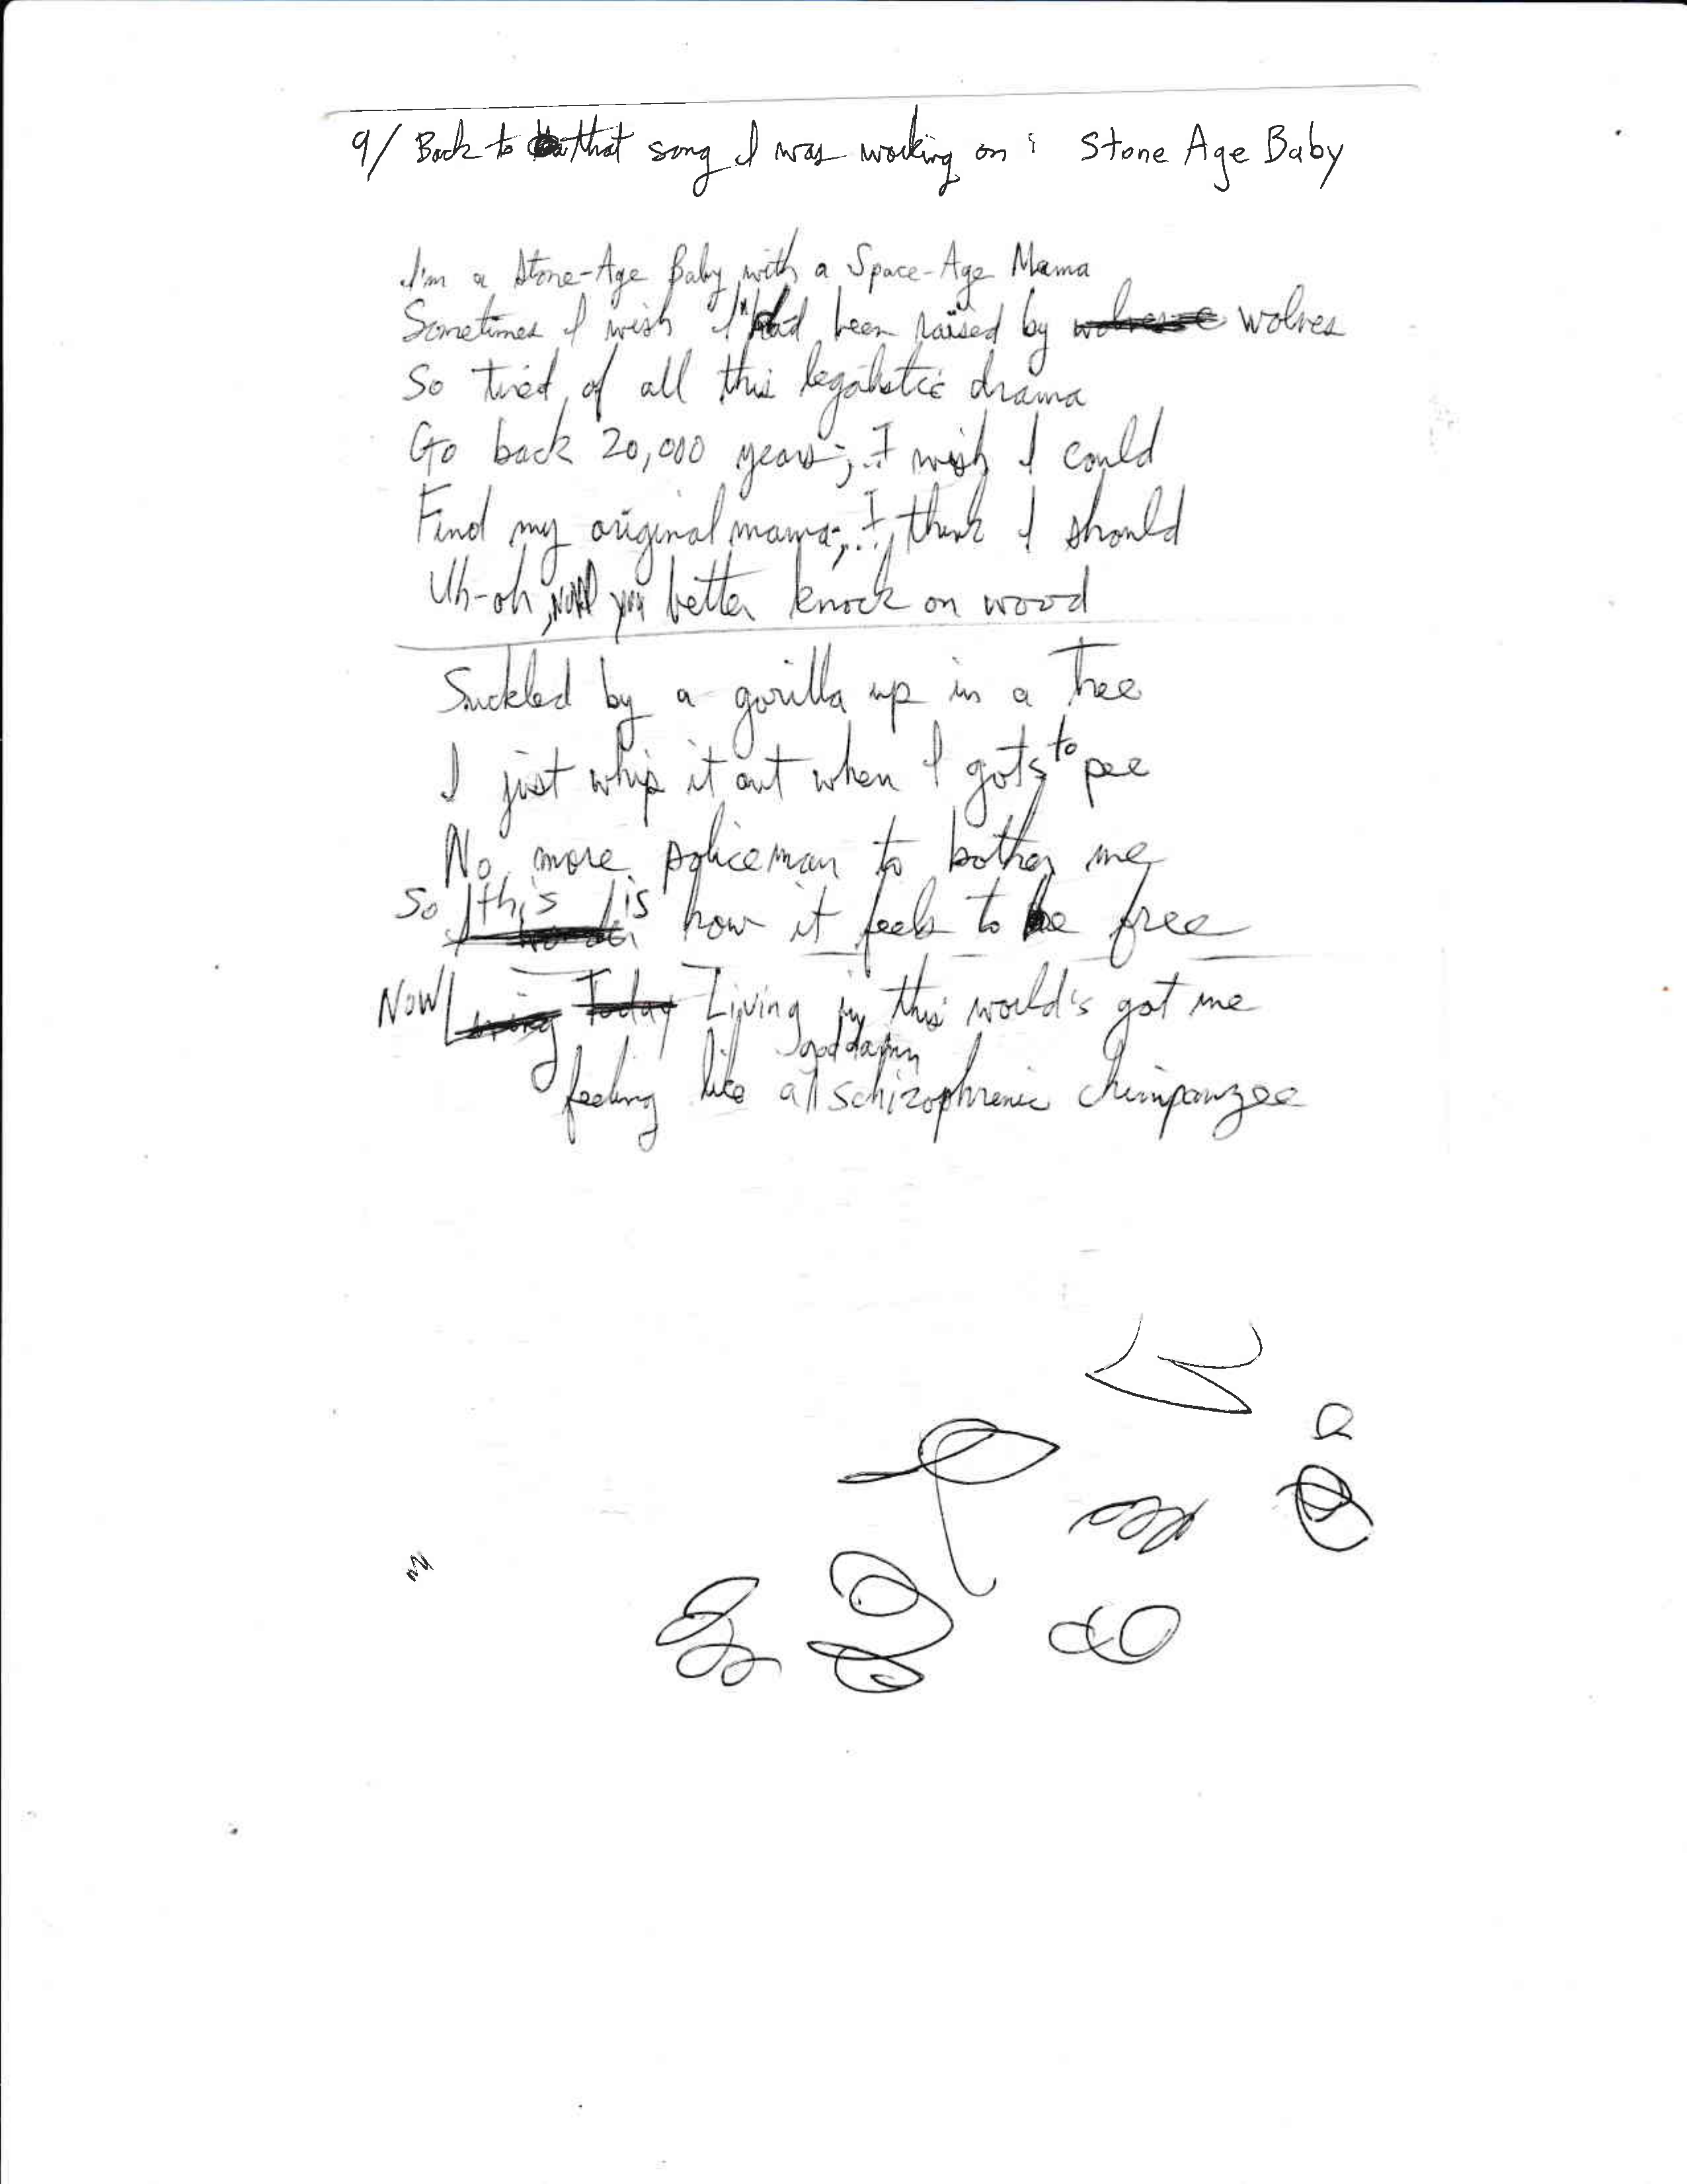 9/ Back to that song I was working on : Stone Age Baby
I'm a Stone-Age Baby with a Space-Age Mama
Sometimes I wish I had been raised by wolves
So tired of all this legalistic drama
Go back 20,000 years; I wish I could
Find my original mama; I think I should
Uh-oh, you better knock on wood
Suckled by a gorilla up in a tree
I just whip it out when I gots to pee
No more policeman to bother me
So this is how it feels to be free
Now Today Living in this world's got me
feeling like a goddamn schizophrenic chimpanzee